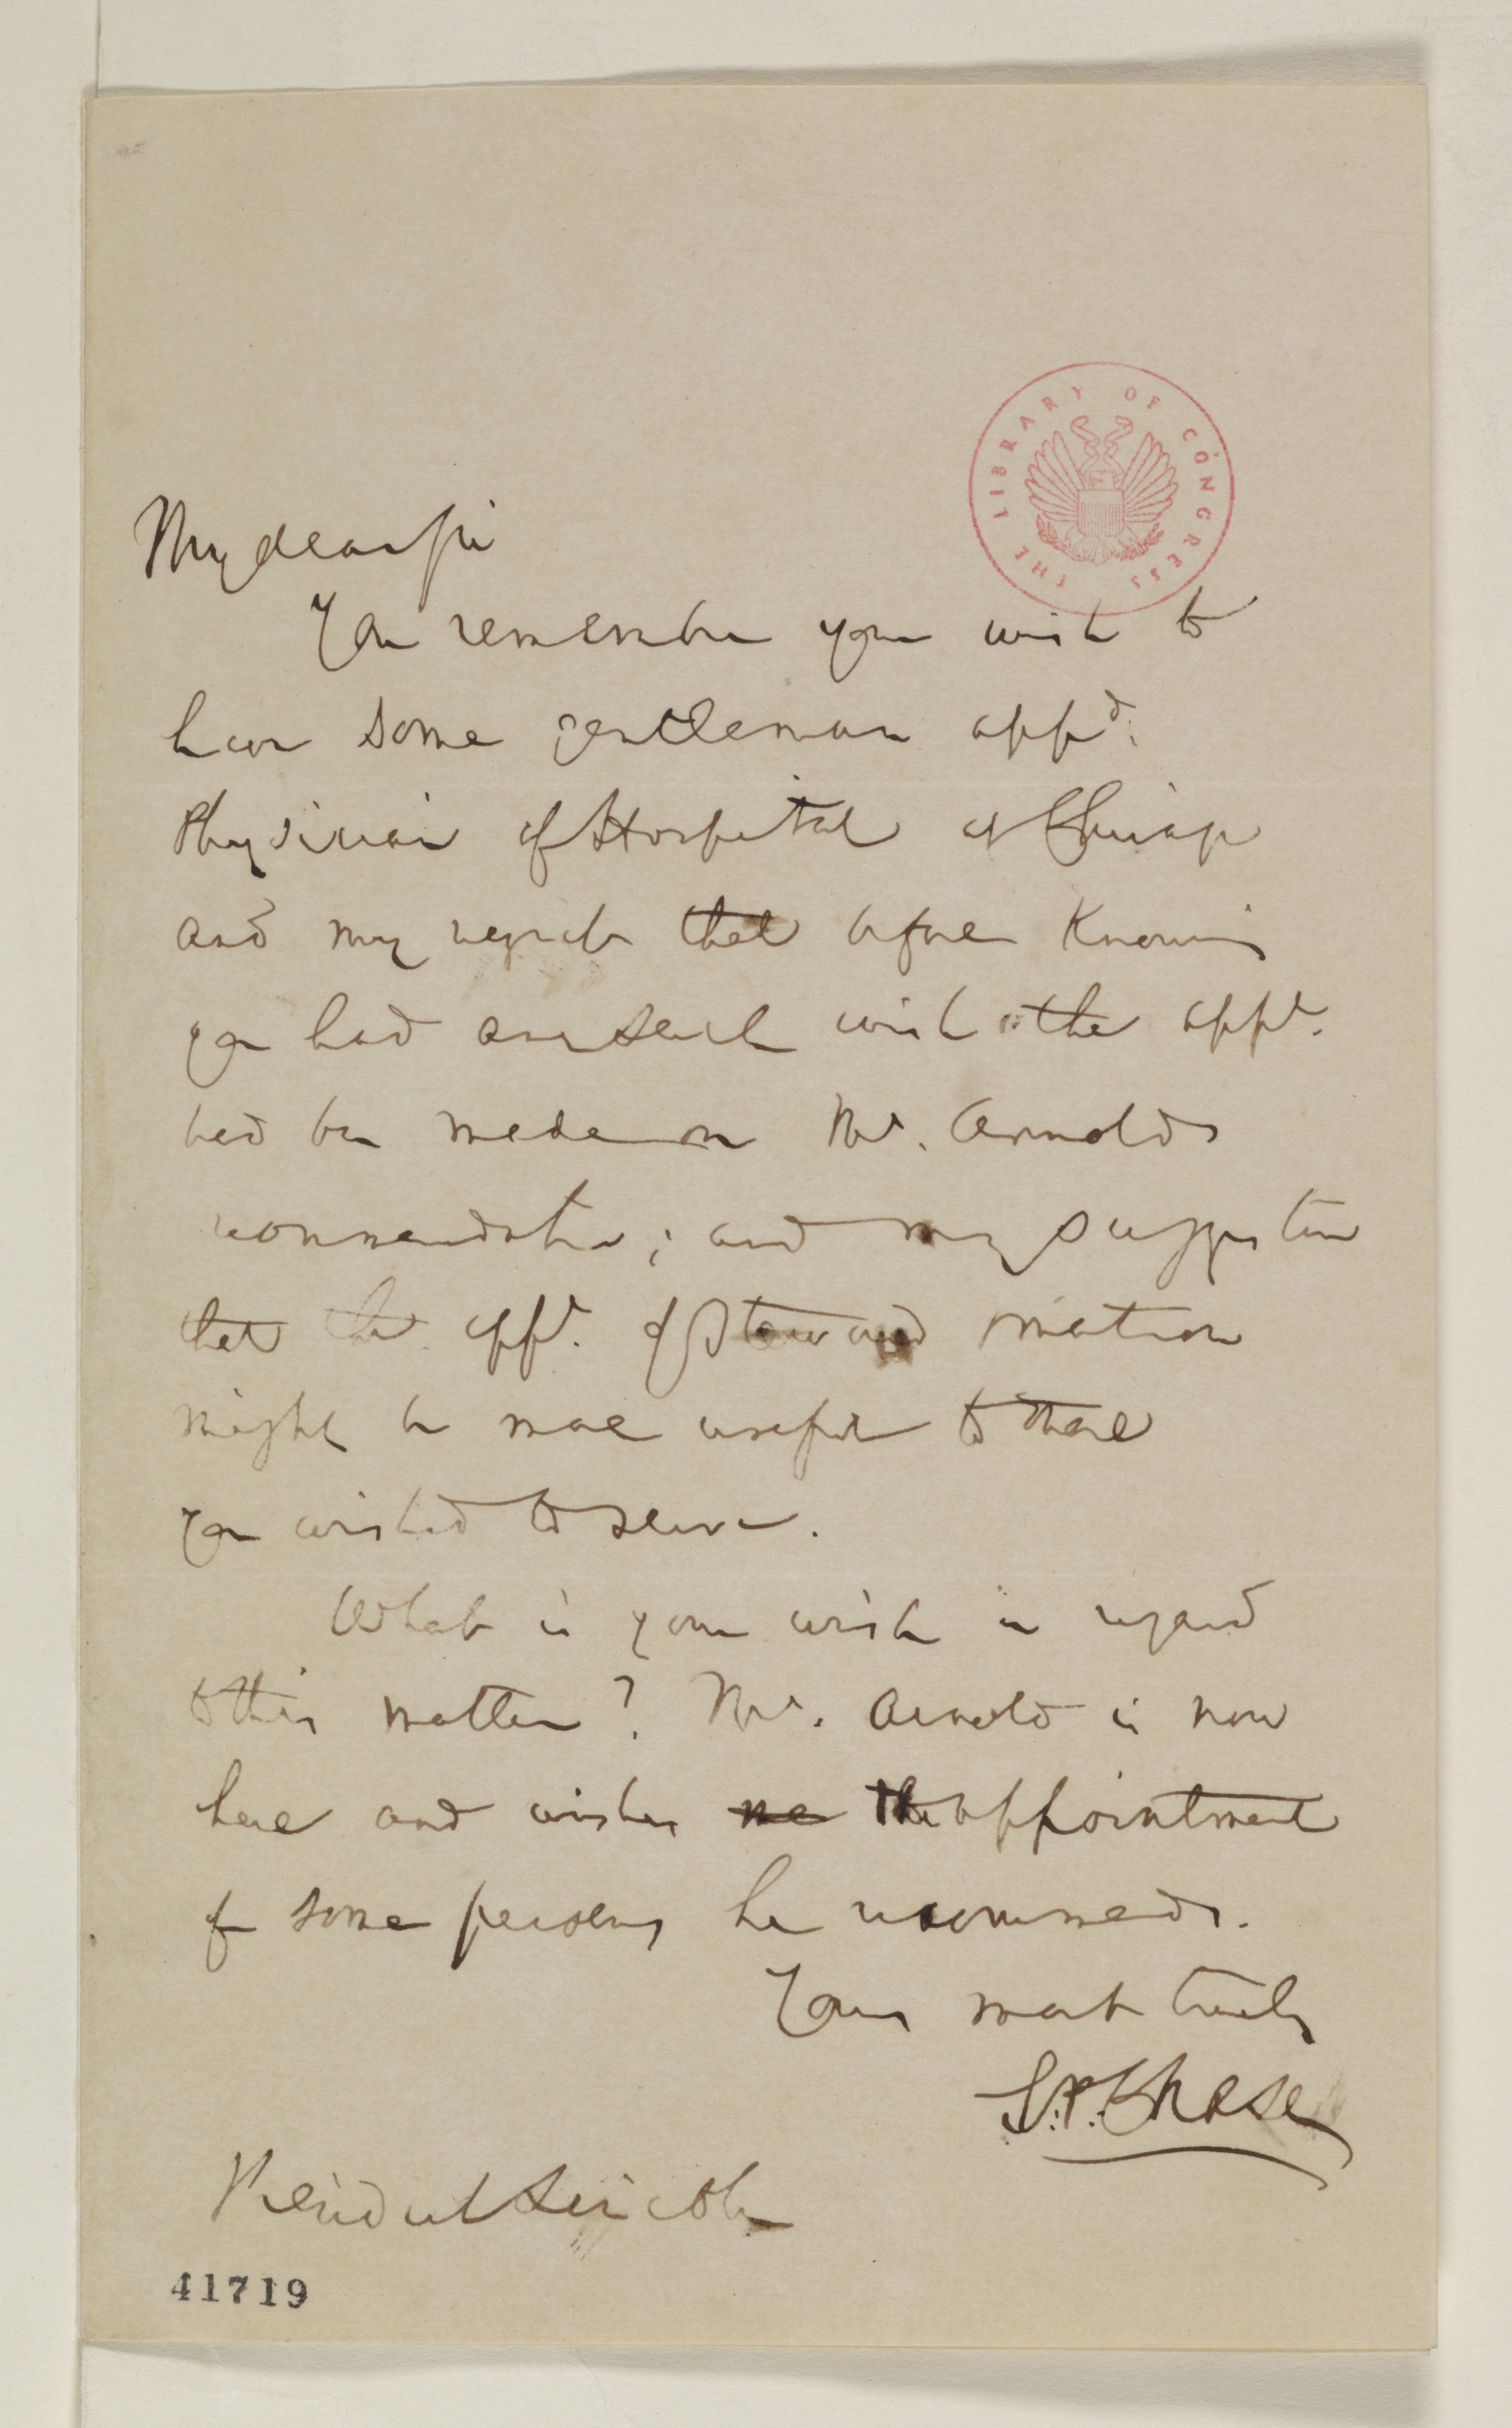 THE LIBRARY OF CONGRESS
My dear sir
You remember your wish to
have some gentleman appd.
Physician of Hospital at Chicago
and my regret that before knowing
you had any such wish the appt.
had been made on Mr. Arnolds
recommendation; and my suggestion
that the appt. of Steward & matron
might be more useful to those
you wished to serve.
What is your wish in regard
to this matter? Mr. Arnold is now
here and wishes me the appointment
of some persons he recommends.
Yours most truly
S.P. Chase
President Lincoln
41719